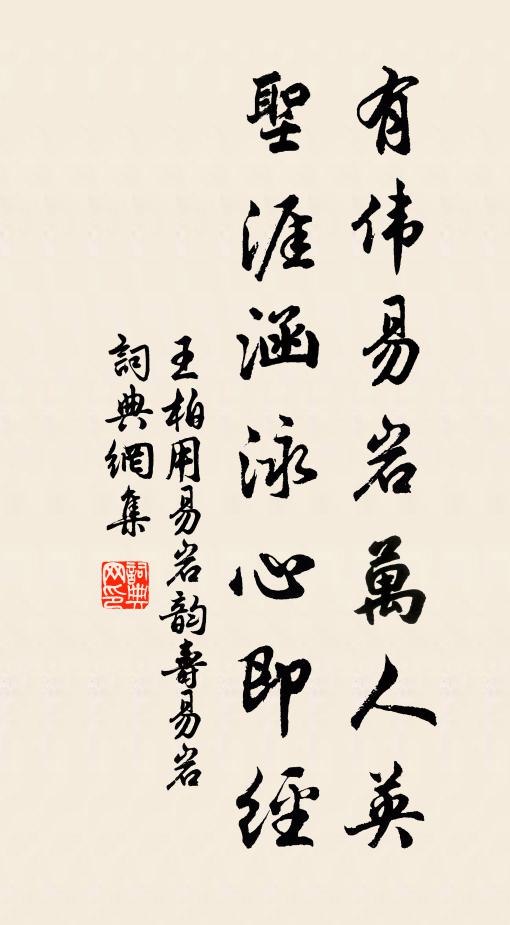 有伟易岩萬人英
聖涯涵泳心即經
王柏用易岩韵壽易岩
詞典網集
詞典网印